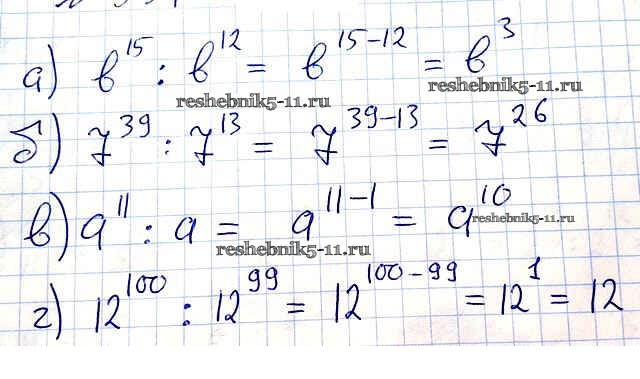 а) b¹⁵ : b¹² = b¹⁵⁻¹² = b³
reshebnik5-11.ru reshebnik5-11.ru
б) 7³⁹ : 7¹³ = 7³⁹⁻¹³ = 7²⁶
в) a¹¹ : a = a¹¹⁻¹ = a¹⁰
reshebnik5-11.ru
reshebnik5-11.ru
г) 12¹⁰⁰ : 12⁹⁹ = 12¹⁰⁰⁻⁹⁹ = 12¹ = 12